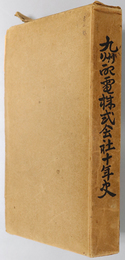 九州配電株式会社十年史